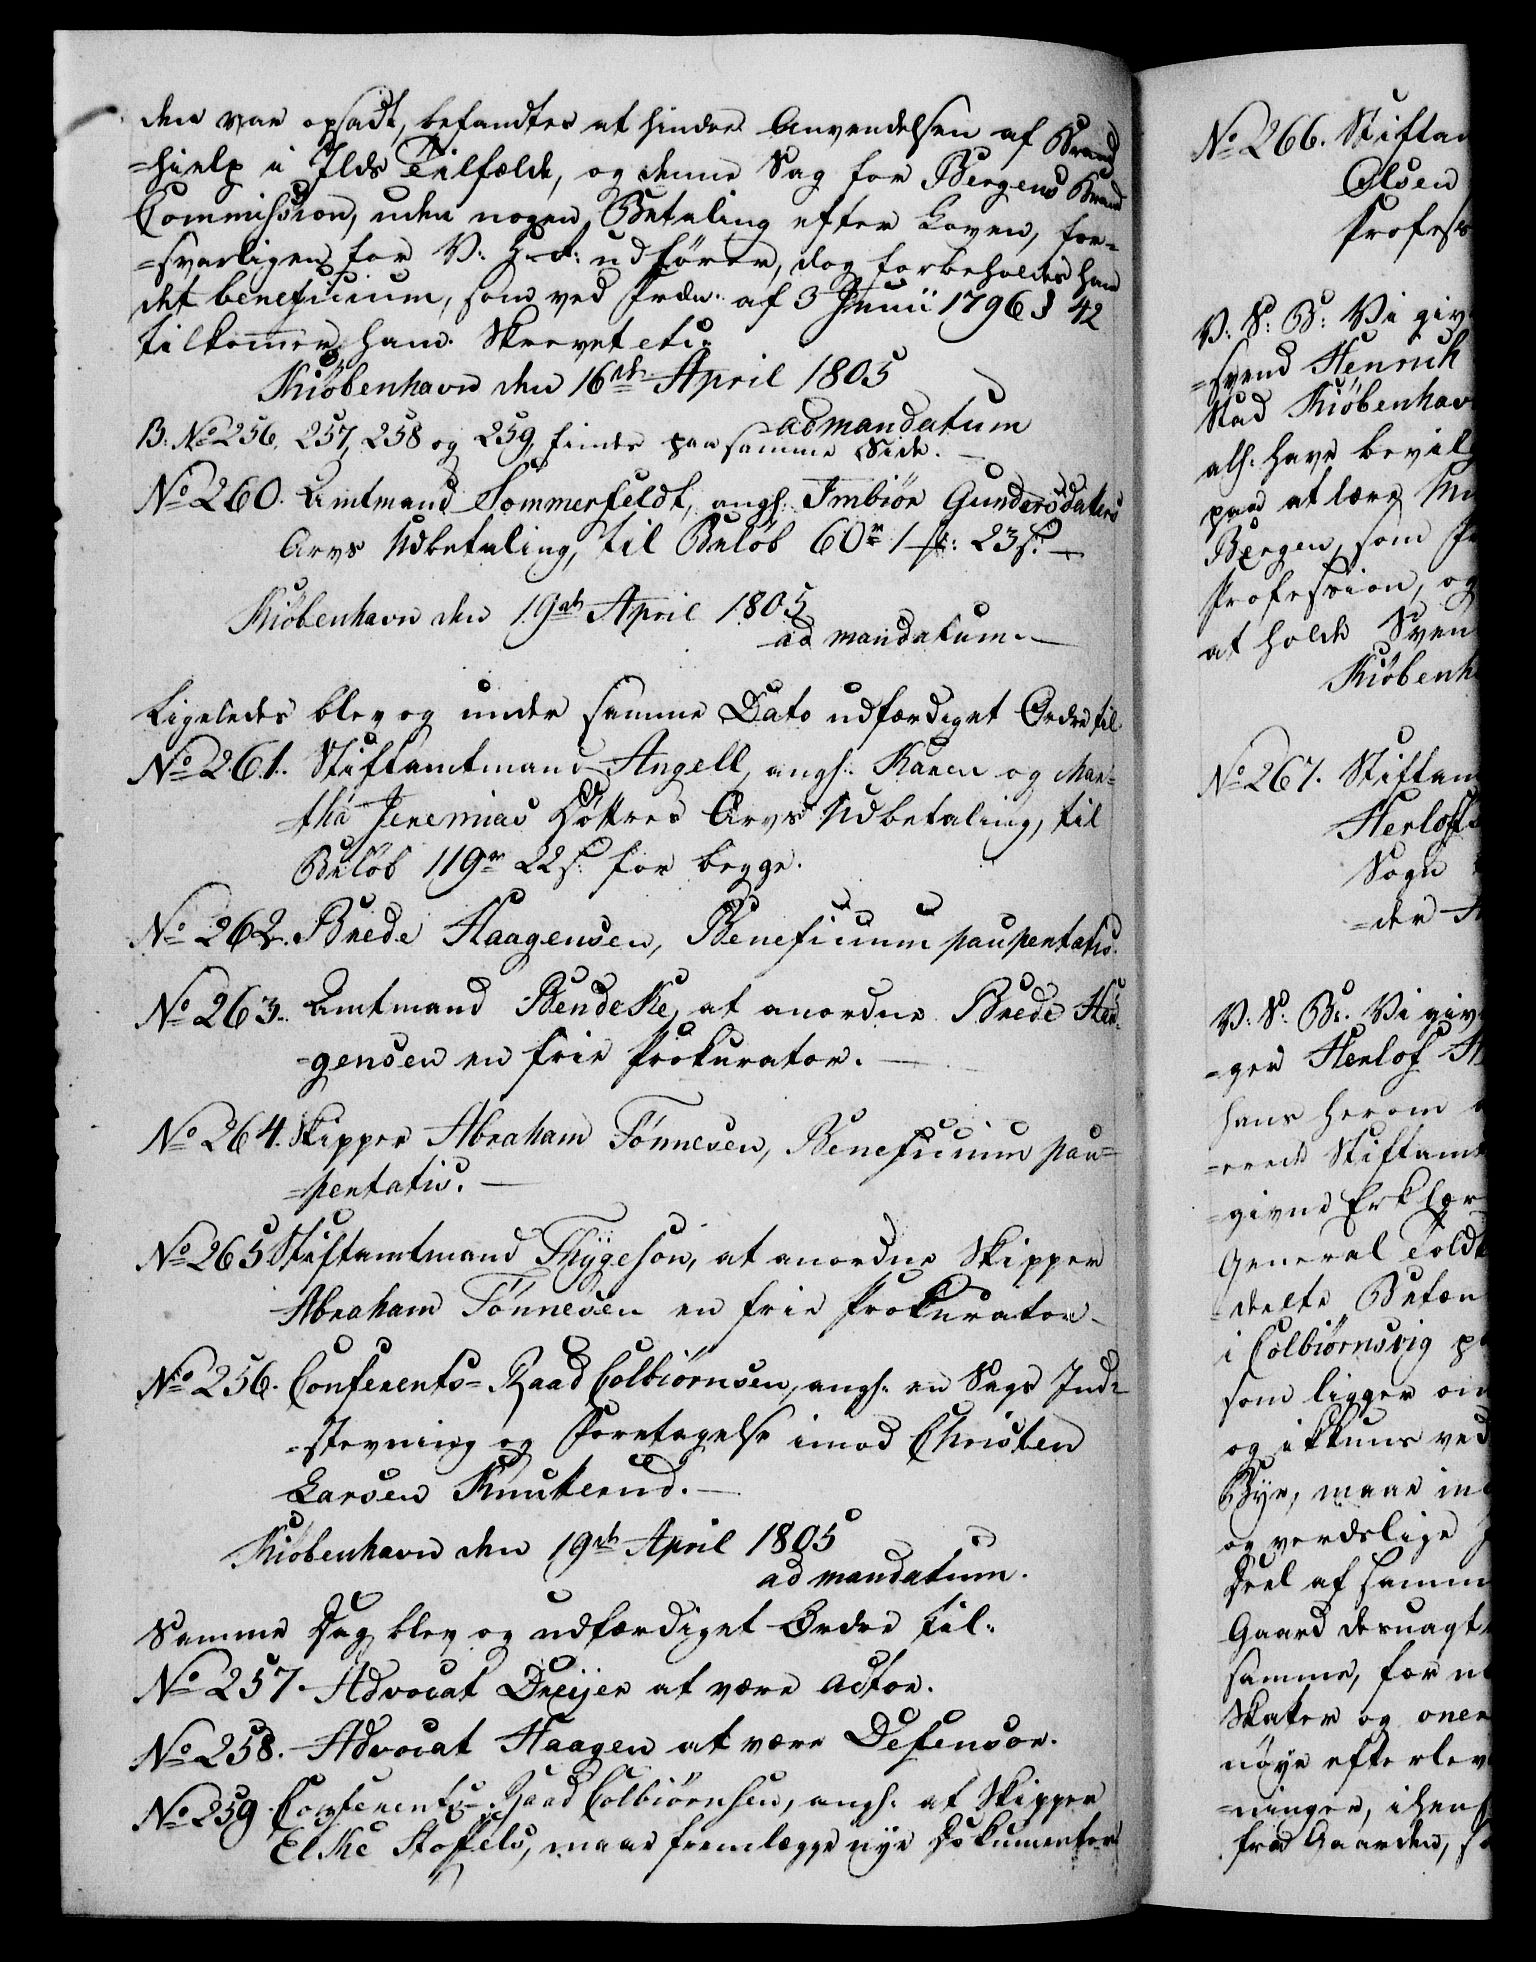 den var opsadt, befandtes at hindre Anvendelsen af Brand
=hielp i Ilds Tilfælde, og denne Sag for Bergens Brand
Commission, uden nogen Betaling efter Loven, for=
=svarligen for V: H: udfører, dog forbeholdes ham
det beneficium, som ved Frdn: af 3 Junii 1796 § 42
tilkommer ham. Skrevet etc:
Kiøbenhavn den 16de April 1805
ad mandatum
B: No 256, 257, 258 og 259 findes paa samme Side.
No 260. Amtmand Sommerfeldt, angl: Imbiør Gundersdatters
Arvs Udbetaling, til Beløb 60 r 1 : 23 s. —
Kiøbenhavn den 19de April 1805
ad mandatum. —
Ligeledes blev og under samme Dato udfærdiget Ordre til
No 261. Stiftamtmand Angell, angl: Karen og Mar=
=tha Jeremias Døttres Arvs Udbetaling, til
Beløb 119 r 22 s. for begge.
No 262. Brede Haagensen, Beneficium paupertatis.
No 263. Amtmand Bendeke, at anordne Brede Haa=
=gensen en frie Prokurator. —
No 264. Skipper Abraham Tønnesen, Beneficium pau=
=pertatis. —
No 265. Stiftamtmand Thygeson, at anordne Skipper
Abraham Tønnesen en frie Prokurator —
No 256. Conferents=Raad Colbiørnsen, angl. en Sags Ind=
=stevning og Foretagelse imod Christen
Larsen Knukerud. —
Kiøbenhavn den 19de April 1805
ad mandatum.
Samme Dag blev og udfærdiget Ordre til:
No 257. Advocat Dreijer at være Actor.
No 258. Advocat Haagen at være Defensor.
No 259. Conferents=Raad Colbiørnsen, angl. at Skipper
Elke Stoffels, maae fremlægge nye Dokumenter
No 266. Stiftam
Olsen
Profess
V: S: B: Vi giv
=svend Henrich
Stad Kiøbenhav
alh: have bevil
paa at lære
Bergen, som
Profession, og
at holde Sven
Kiøbenh
No 267. Stiftam
Herlof
Sogn
=der
V: S: B: Vi giv
=ger Herlof
hans herom
=erede Stiftamt
=givne Erklær
General Told
=deelte Betæn
i Colbiørnsvig p
som ligger om
og ikkuns ved
Bye, maae in
og verdslige
Deel af samm
Gaard desuagt
samme, for
Skatter og oner
nøye efterlev
=ninger, ihen
fra Gaarden, s